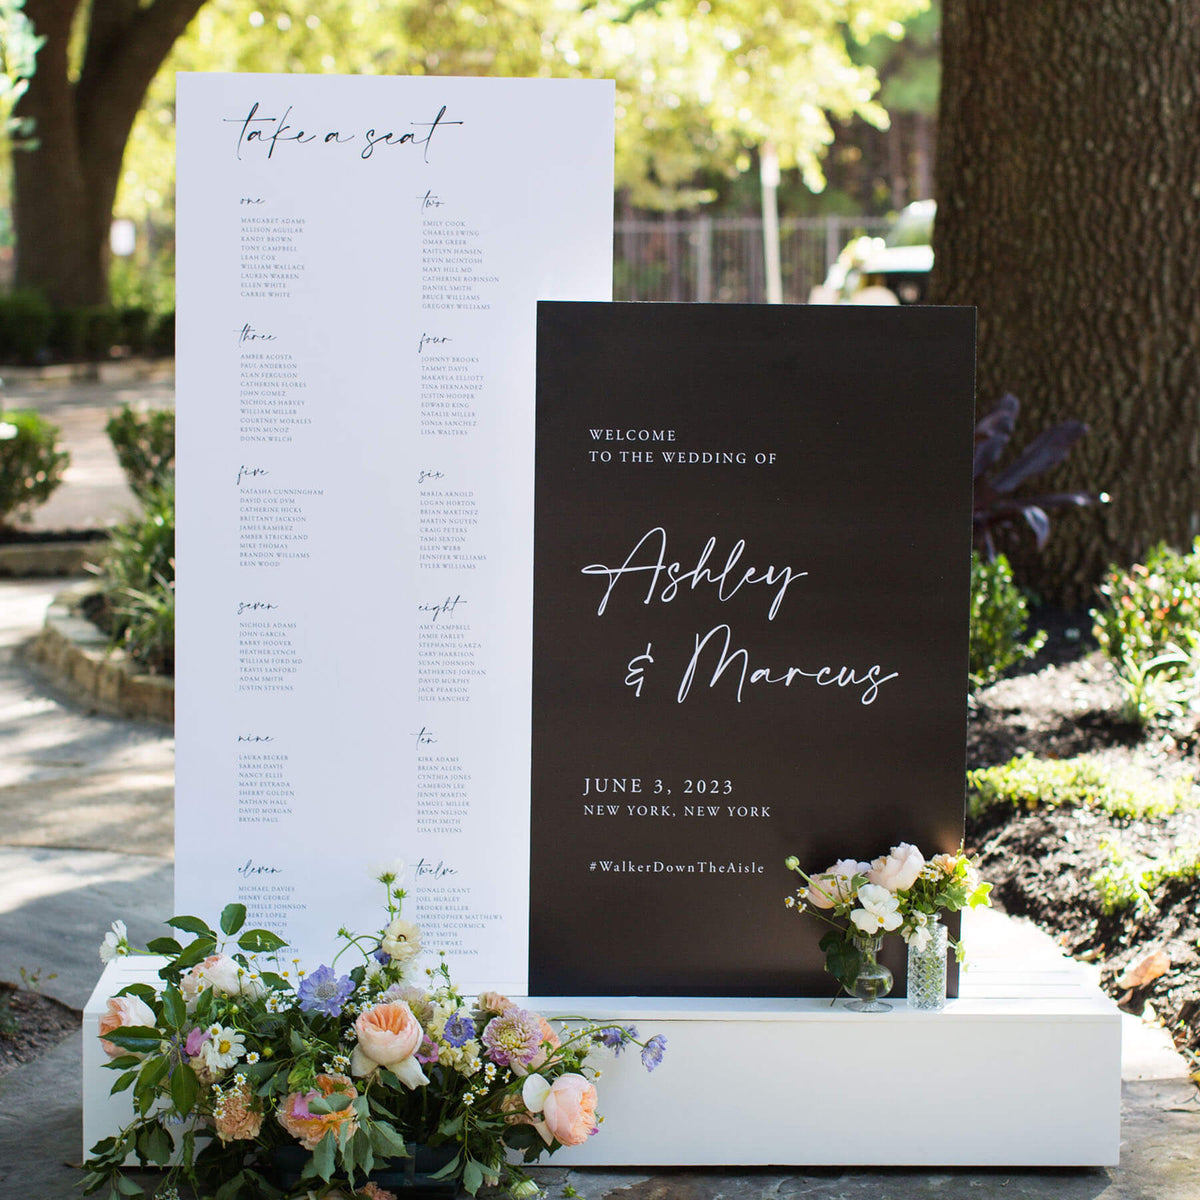 take a seat
one
MARGARET ADAMS
ALLISON AGUILAR
RANDY BROWN
TONY CAMPBELL
LEAH COX
WILLIAM WALLACE
LAUREN WARREN
ELLEN WHITE
CARRIE WHITE
two
EMILY COOK
CHARLES EWING
OMAR GREER
KAITLYN HANSEN
KEVIN MCINTOSH
MARY HILL MD
CATHERINE ROBINSON
DANIEL SMITH
BRUCE WILLIAMS
GREGORY WILLIAMS
three
AMBER ACOSTA
PAUL ANDERSON
ALAN FERGUSON
CATHERINE FLORES
JOHN GOMEZ
NICHOLAS HARVEY
WILLIAM MILLER
COURTNEY MORALES
KEVIN MUNOZ
DONNA WELCH
four
JOHNNY BROOKS
TAMMY DAVIS
MAKAYLA ELLIOTT
TINA HERNANDEZ
JUSTIN HOOPER
EDWARD KING
NATALIE MILLER
SONIA SANCHEZ
LISA WALTERS
five
NATASHA CUNNINGHAM
DAVID COX DVM
CATHERINE HICKS
BRITTANY JACKSON
JAMES RAMIREZ
AMBER STRICKLAND
MIKE THOMAS
BRANDON WILLIAMS
ERIN WOOD
six
MARIA ARNOLD
LOGAN HORTON
BRIAN MARTINEZ
MARTIN NGUYEN
CRAIG PETERS
TAMI SEXTON
ELLEN WEBB
JENNIFER WILLIAMS
TYLER WILLIAMS
seven
NICHOLE ADAMS
JOHN GARCIA
BARRY HOOVER
HEATHER LYNCH
WILLIAM FORD MD
TRAVIS SANFORD
ADAM SMITH
JUSTIN STEVENS
eight
AMY CAMPBELL
JAMIE FARLEY
STEPHANIE GARZA
GARY HARRISON
SUSAN JOHNSON
KATHERINE JORDAN
DAVID MURPHY
JACK PEARSON
JULIE SANCHEZ
nine
LAURA BECKER
SARAH DAVIS
NANCY ELLIS
MARY ESTRADA
SHERRY GOLDEN
NATHAN HALL
DAVID MORGAN
BRYAN PAUL
ten
KIRK ADAMS
BRIAN ALLEN
CYNTHIA JONES
CAMERON LEE
JENNY MARTIN
SAMUEL MILLER
BRYAN NELSON
KEITH SMITH
LISA STEVENS
eleven
MICHAEL DAVIES
HENRY GEORGE
JOHNSON
LOPEZ
LYNCH
SMITH
twelve
DONALD GRANT
JOEL HURLEY
BROOKE KELLER
CHRISTOPHER MATTHEWS
DANIEL MCCORMICK
SMITH
STEWART
SHERMAN
WELCOME
TO THE WEDDING OF
Ashley
& Marcus
JUNE 3, 2023
NEW YORK, NEW YORK
#WalkerDownTheAisle